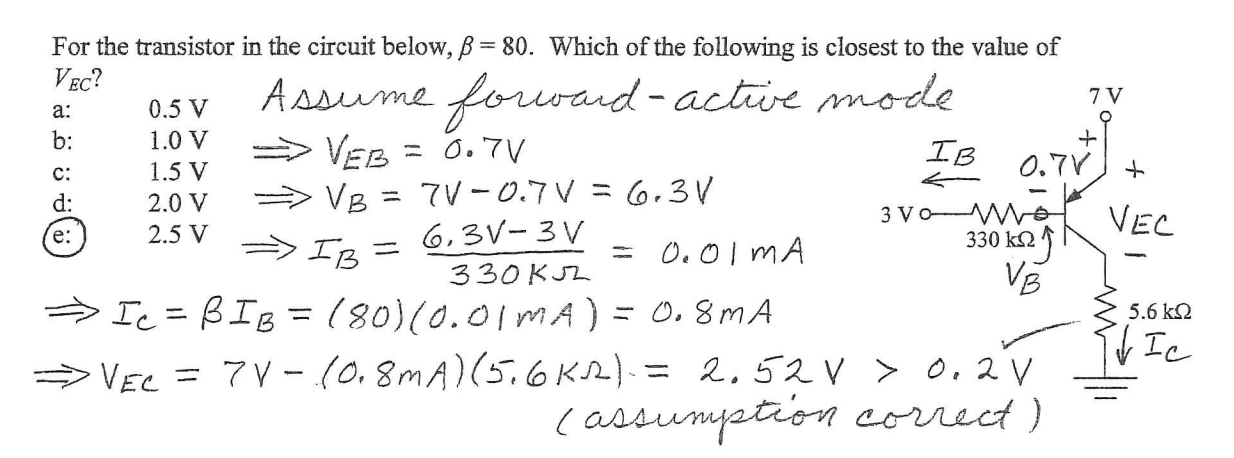 For the transistor in the circuit below, β = 80. Which of the following is closest to the value of
VEC?
a: 0.5 V
b: 1.0 V
c: 1.5 V
d: 2.0 V
e: 2.5 V
Assume forward-active mode
⇒ VEB = 0.7V
⇒ VB = 7V - 0.7V = 6.3V
⇒ IB = (6.3V - 3V) / 330KΩ = 0.01mA
⇒ IC = βIB = (80)(0.01mA) = 0.8mA
⇒ VEC = 7V - (0.8mA)(5.6KΩ) = 2.52V > 0.2V
(assumption correct)
7 V
+
IB 0.7V +
-
3 V VEC
330 kΩ -
VB
5.6 kΩ
IC